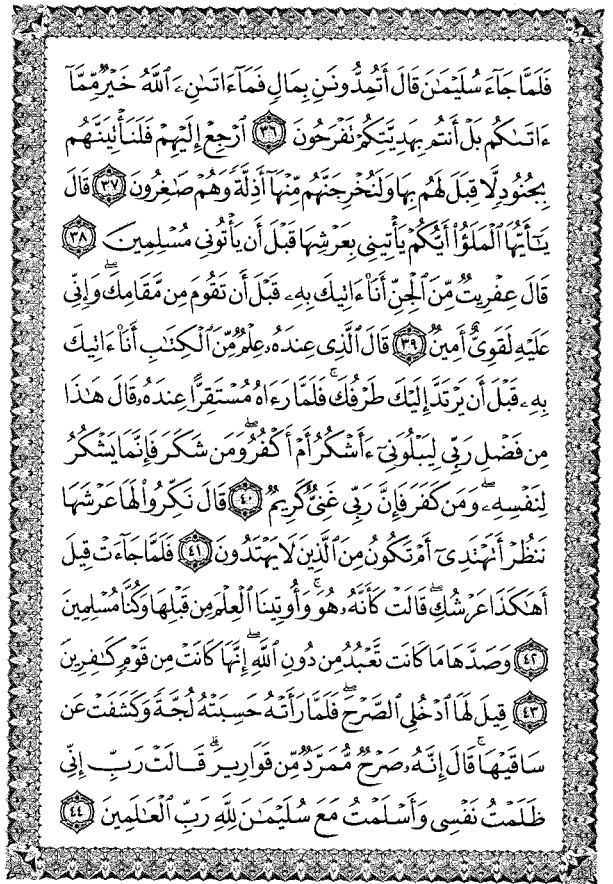 فَلَمَّا جَآءَ سُلَيْمَـٰنَ قَالَ أَتُمِدُّونَنِ بِمَالٍ فَمَآ ءَاتَىٰنِۦَ ٱللَّهُ خَيْرٌ مِّمَّآ
ءَاتَىٰكُم بَلْ أَنتُم بِهَدِيَّتِكُمْ تَفْرَحُونَ ٣٦ ٱرْجِعْ إِلَيْهِمْ فَلَنَأْتِيَنَّهُم
بِجُنُودٍ لَّا قِبَلَ لَهُم بِهَا وَلَنُخْرِجَنَّهُم مِّنْهَآ أَذِلَّةً وَهُمْ صَـٰغِرُونَ ٣٧ قَالَ
يَـٰٓأَيُّهَا ٱلْمَلَؤُا۟ أَيُّكُمْ يَأْتِينِى بِعَرْشِهَا قَبْلَ أَن يَأْتُونِى مُسْلِمِينَ ٣٨
قَالَ عِفْرِيتٌ مِّنَ ٱلْجِنِّ أَنَا۠ ءَاتِيكَ بِهِۦ قَبْلَ أَن تَقُومَ مِن مَّقَامِكَ ۖ وَإِنِّى
عَلَيْهِ لَقَوِىٌّ أَمِينٌ ٣٩ قَالَ ٱلَّذِى عِندَهُۥ عِلْمٌ مِّنَ ٱلْكِتَـٰبِ أَنَا۠ ءَاتِيكَ
بِهِۦ قَبْلَ أَن يَرْتَدَّ إِلَيْكَ طَرْفُكَ ۚ فَلَمَّا رَءَاهُ مُسْتَقِرًّا عِندَهُۥ قَالَ هَـٰذَا
مِن فَضْلِ رَبِّى لِيَبْلُوَنِىٓ ءَأَشْكُرُ أَمْ أَكْفُرُ ۖ وَمَن شَكَرَ فَإِنَّمَا يَشْكُرُ
لِنَفْسِهِۦ ۖ وَمَن كَفَرَ فَإِنَّ رَبِّى غَنِىٌّ كَرِيمٌ ٤٠ قَالَ نَكِّرُوا۟ لَهَا عَرْشَهَا
نَنظُرْ أَتَهْتَدِىٓ أَمْ تَكُونُ مِنَ ٱلَّذِينَ لَا يَهْتَدُونَ ٤١ فَلَمَّا جَآءَتْ قِيلَ
أَهَـٰكَذَا عَرْشُكِ ۖ قَالَتْ كَأَنَّهُۥ هُوَ ۚ وَأُوتِينَا ٱلْعِلْمَ مِن قَبْلِهَا وَكُنَّا مُسْلِمِينَ
٤٢ وَصَدَّهَا مَا كَانَت تَّعْبُدُ مِن دُونِ ٱللَّهِ ۖ إِنَّهَا كَانَتْ مِن قَوْمٍ كَـٰفِرِينَ
٤٣ قِيلَ لَهَا ٱدْخُلِى ٱلصَّرْحَ ۖ فَلَمَّا رَأَتْهُ حَسِبَتْهُ لُجَّةً وَكَشَفَتْ عَن
سَاقَيْهَا ۚ قَالَ إِنَّهُۥ صَرْحٌ مُّمَرَّدٌ مِّن قَوَارِيرَ ۗ قَالَتْ رَبِّ إِنِّى
ظَلَمْتُ نَفْسِى وَأَسْلَمْتُ مَعَ سُلَيْمَـٰنَ لِلَّهِ رَبِّ ٱلْعَـٰلَمِينَ ٤٤